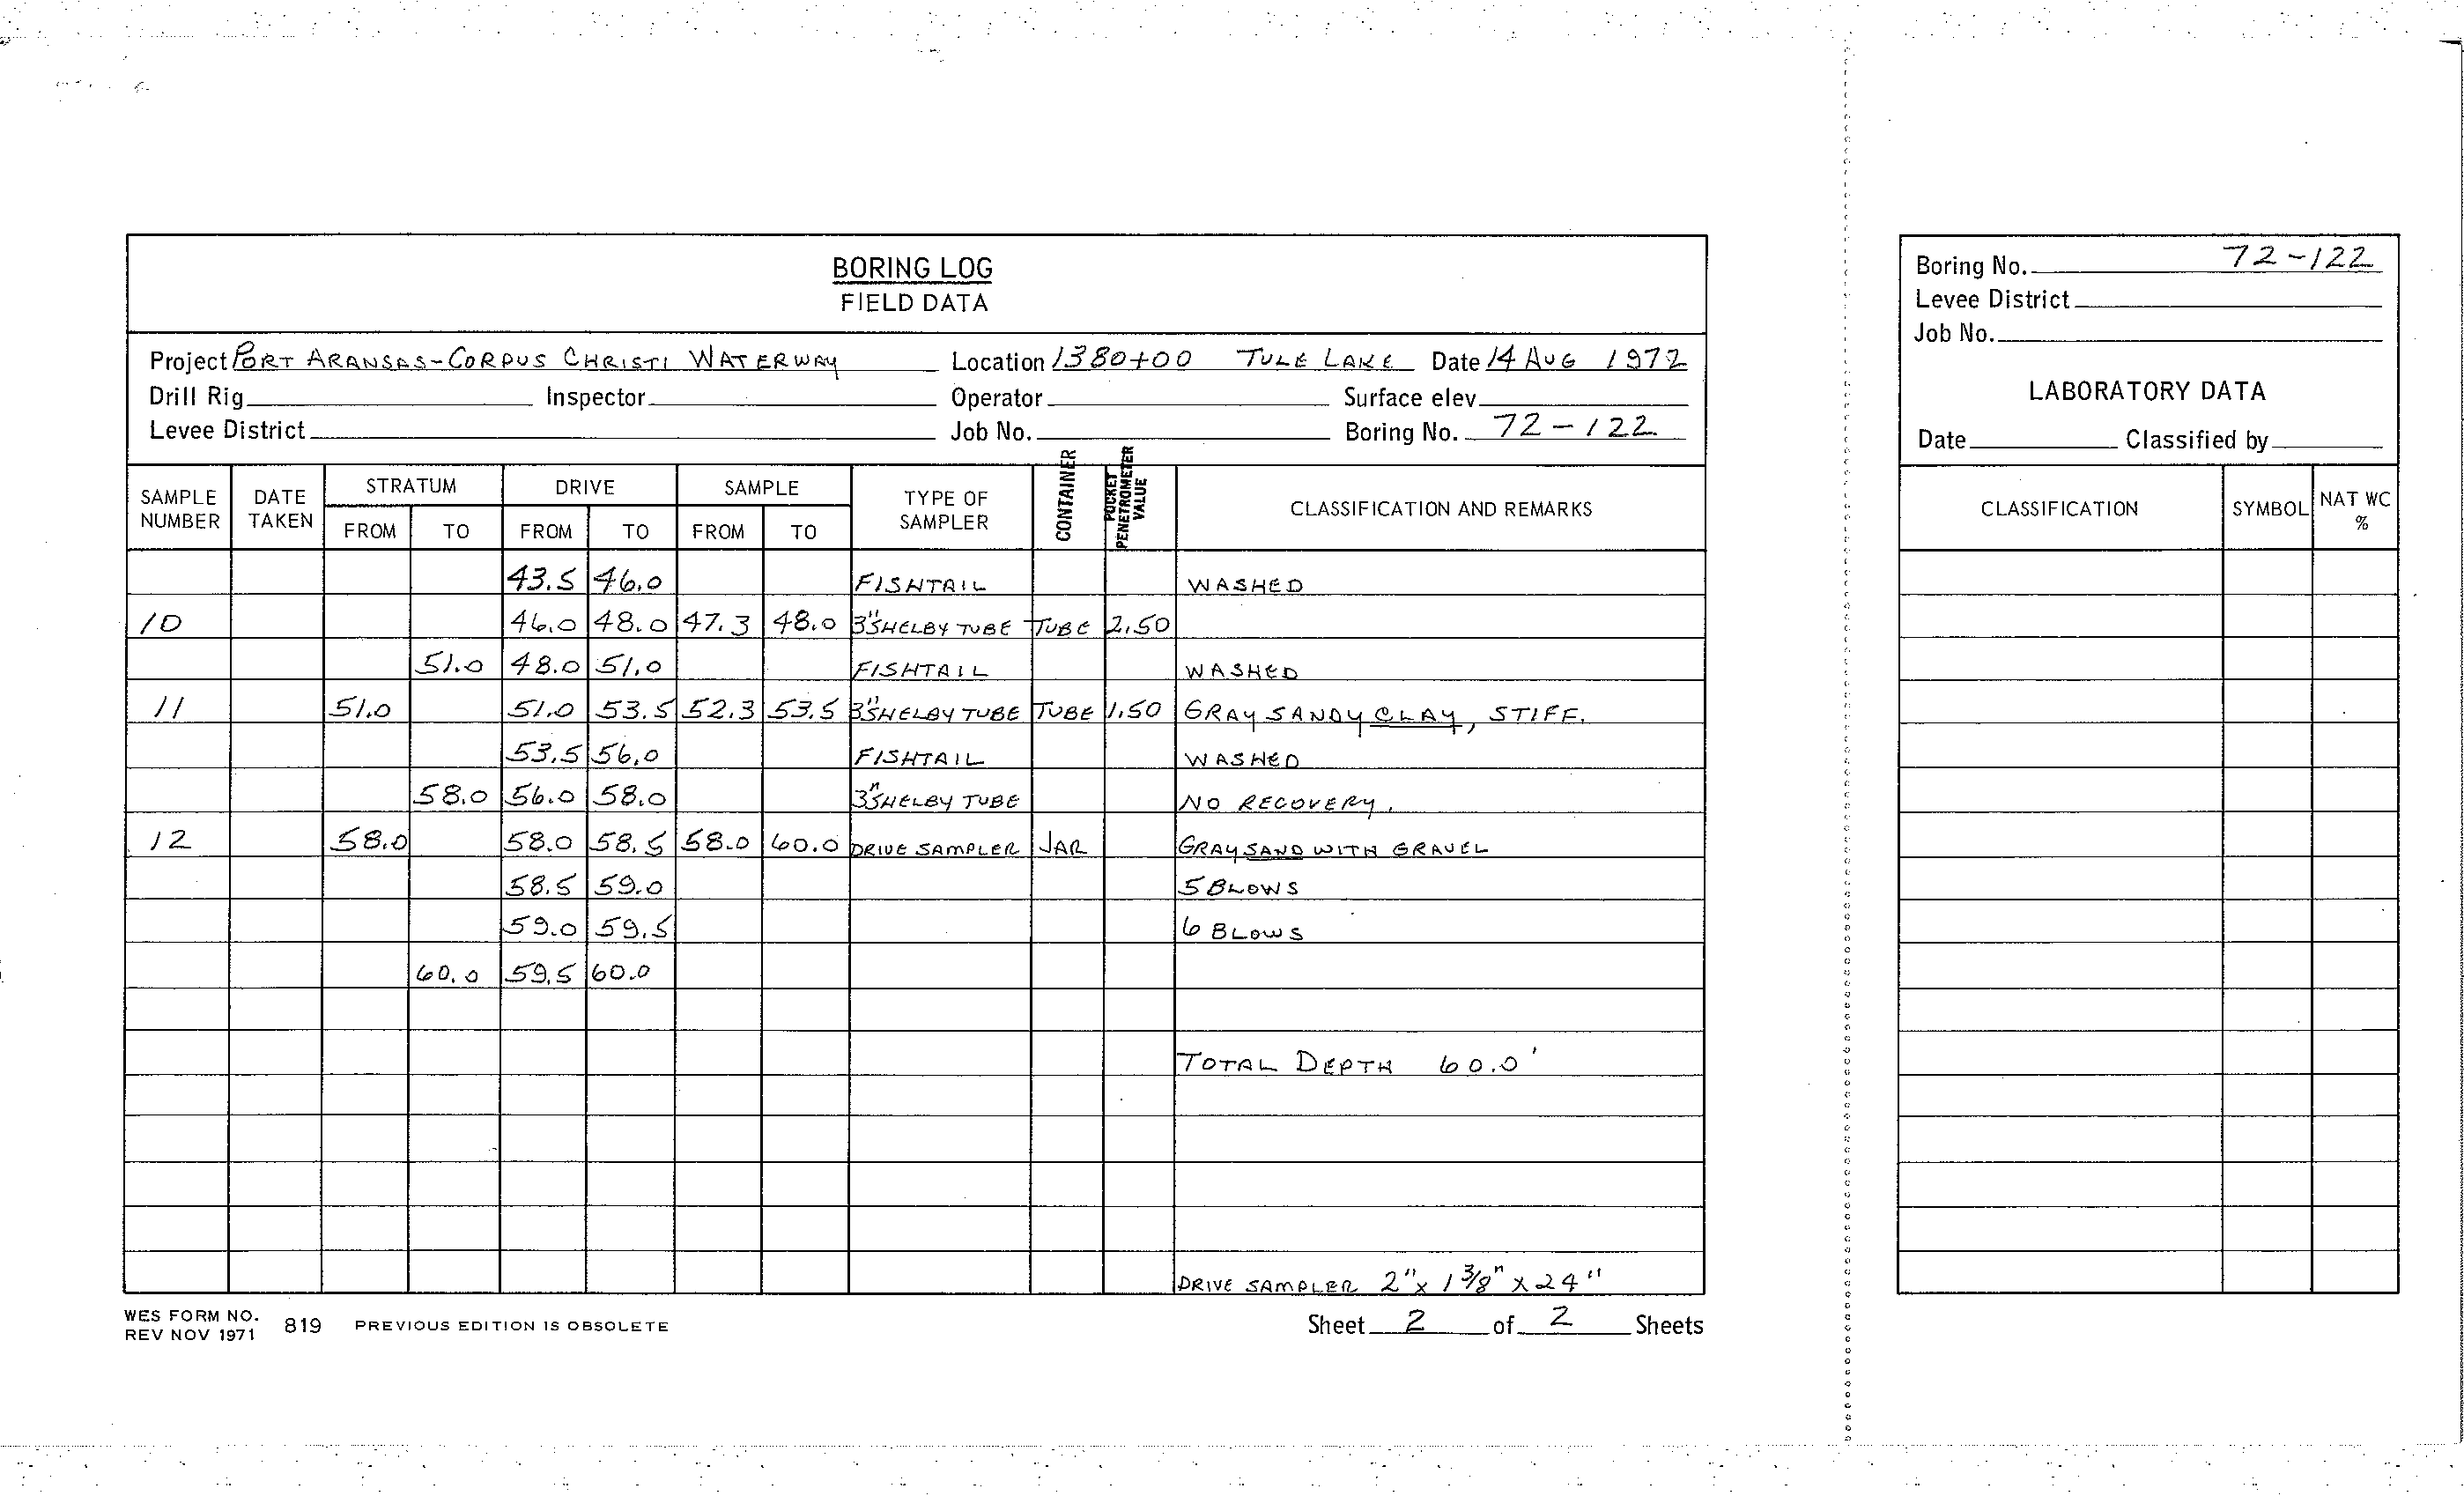 BORING LOG
FIELD DATA
Project PORT ARANSAS-CORPUS CHRISTI WATERWAY Location 1380+00 TULE LAKE Date 14 AUG 1972
Drill Rig Inspector Operator Surface elev.
Levee District Job No. Boring No. 72-122
SAMPLE NUMBER DATE TAKEN STRATUM FROM TO DRIVE FROM TO SAMPLE FROM TO TYPE OF SAMPLER CONTAINER POCKET PENETROMETER VALUE CLASSIFICATION AND REMARKS
43.5 46.0 FISHTAIL WASHED
10 46.0 48.0 47.3 48.0 3" SHELBY TUBE TUBE 2.50
51.0 48.0 51.0 FISHTAIL WASHED
11 51.0 51.0 53.5 52.3 53.5 3" SHELBY TUBE TUBE 1.50 GRAY SANDY CLAY, STIFF.
53.5 56.0 FISHTAIL WASHED
58.0 56.0 58.0 3" SHELBY TUBE NO RECOVERY.
12 58.0 58.0 58.5 58.0 60.0 DRIVE SAMPLER JAR GRAY SAND WITH GRAVEL
58.5 59.0 5 BLOWS
59.0 59.5 6 BLOWS
60.0 59.5 60.0
TOTAL DEPTH 60.0'
DRIVE SAMPLER 2" x 1 3/8" x 24"
WES FORM NO. 819 PREVIOUS EDITION IS OBSOLETE
REV NOV 1971
Sheet 2 of 2 Sheets
Boring No. 72-122
Levee District
Job No.
LABORATORY DATA
Date Classified by
CLASSIFICATION SYMBOL NAT WC %